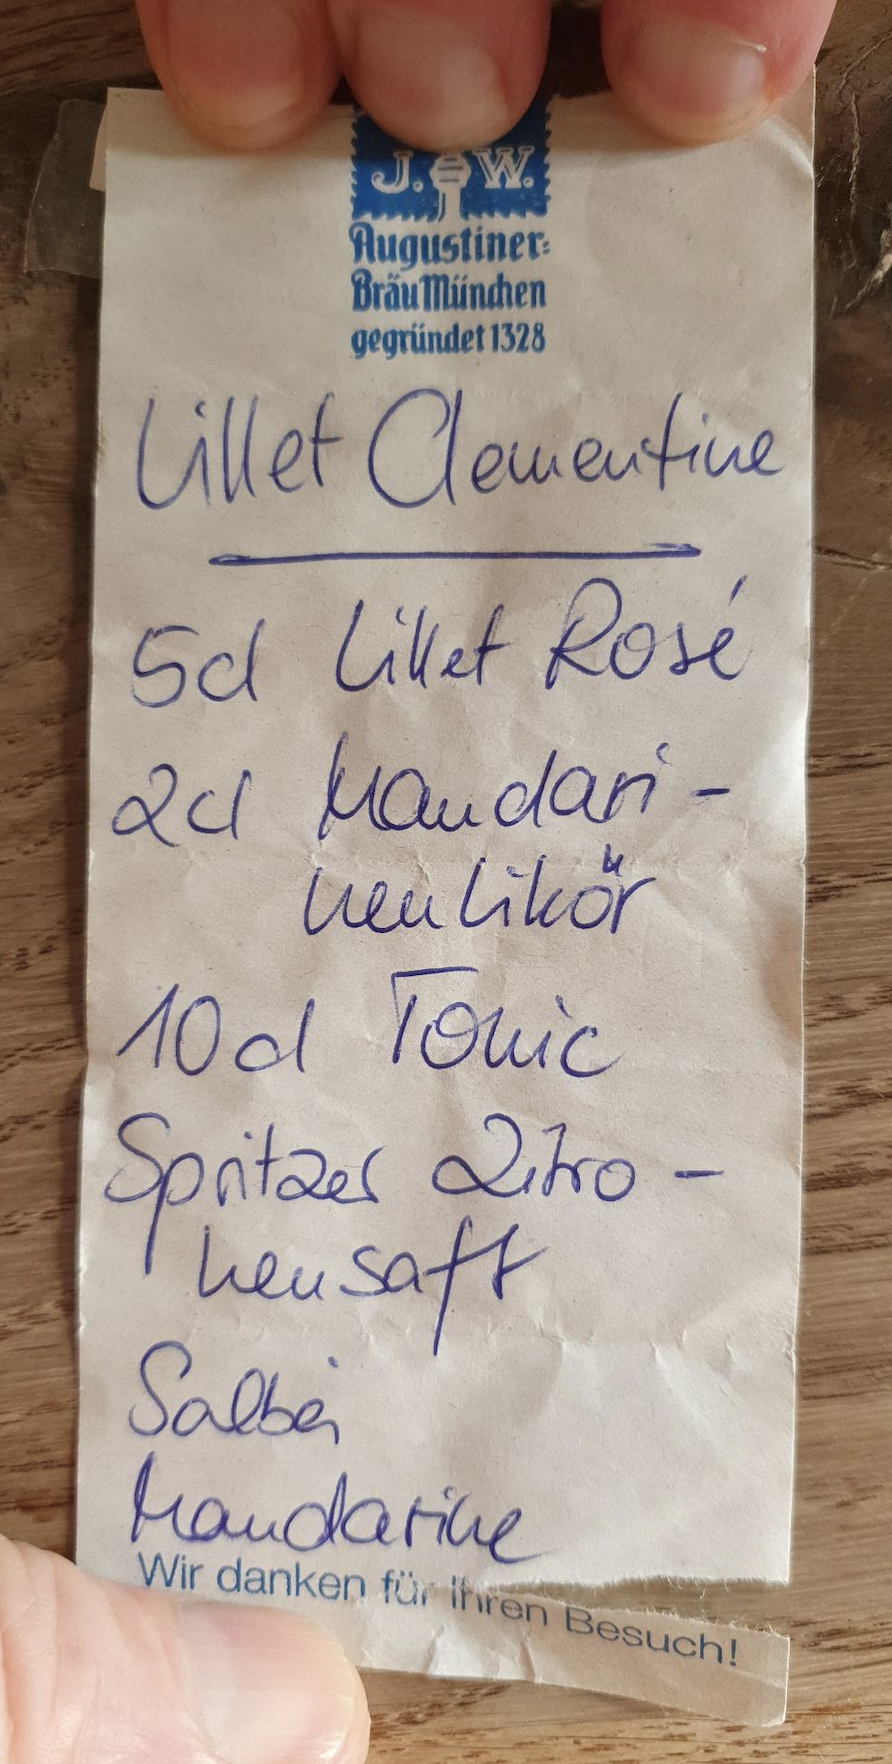 J. W.
Augustiner=
Bräu München
gegründet 1328
Lillet Clementine
5cl Lillet Rosé
2cl Mandari-
nenlikör
10cl Tonic
Spritzer Zitro-
nensaft
Salbei
Mandarine
Wir danken für Ihren Besuch!